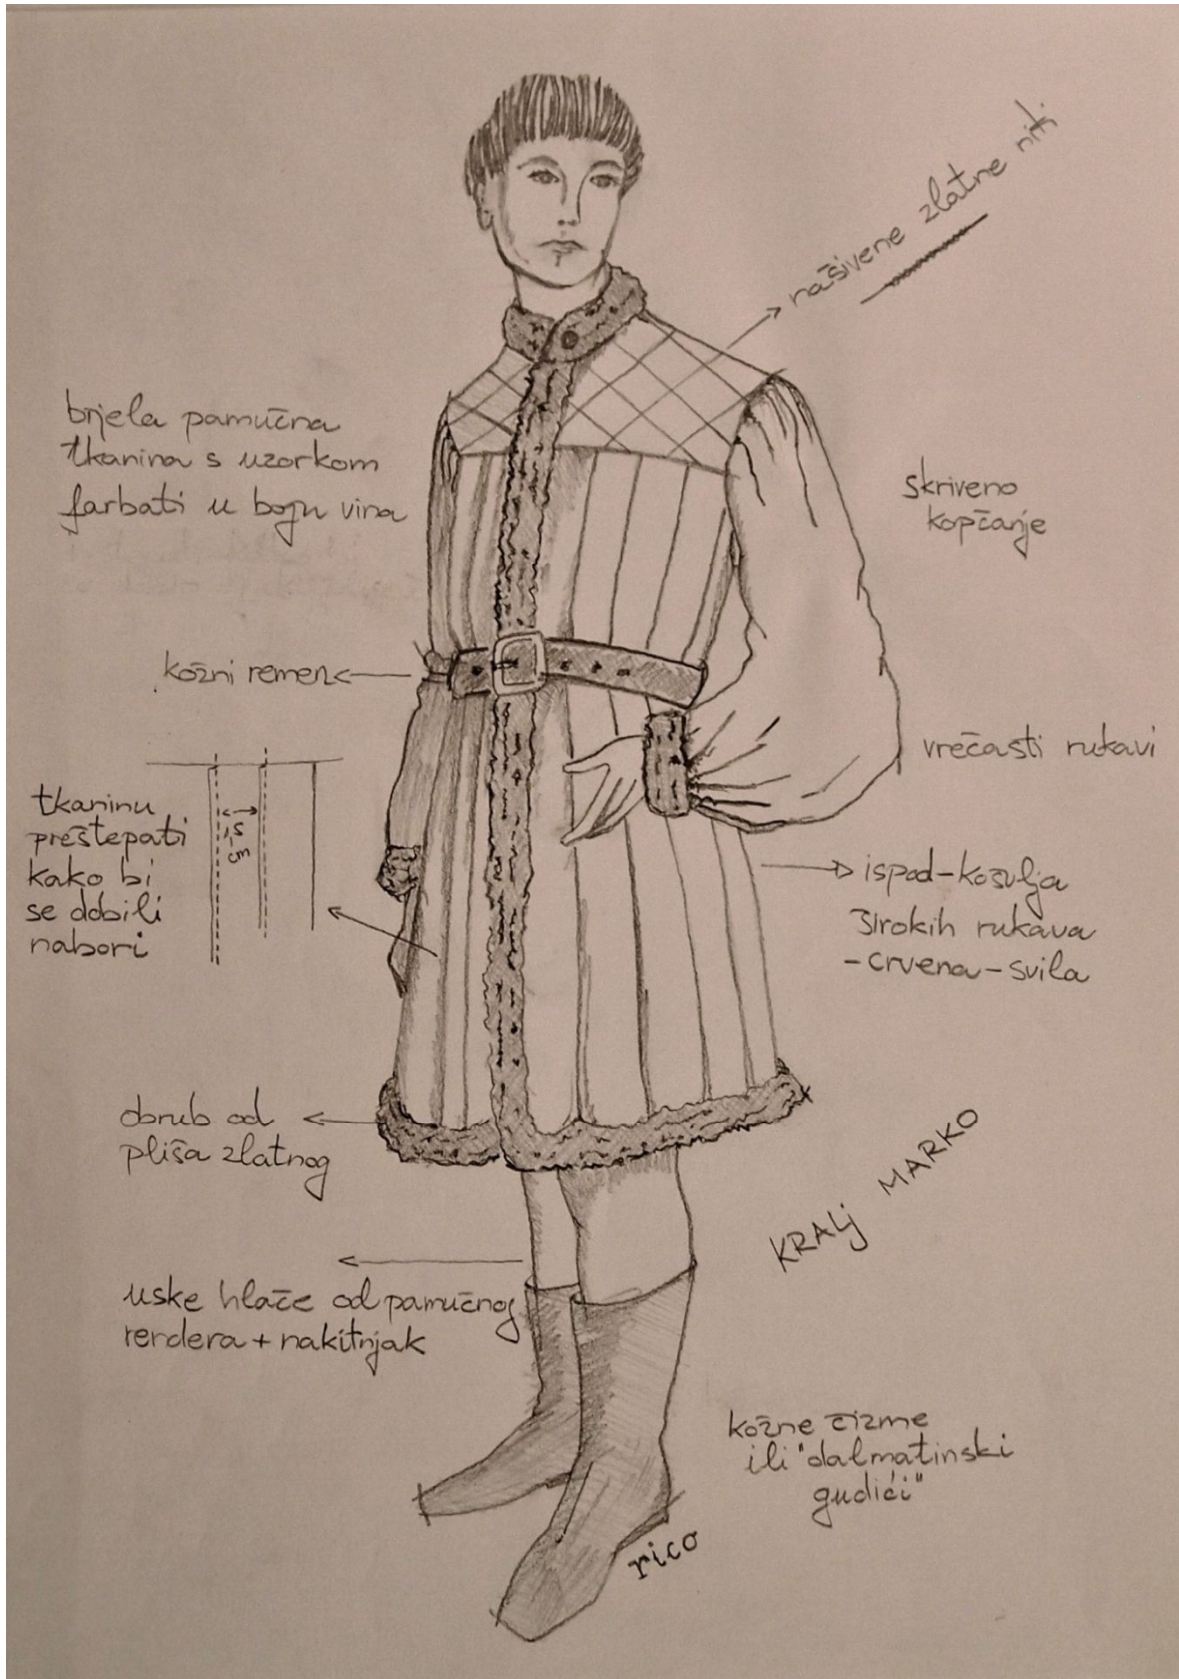 našivene zlatne niti
bijela pamučna
tkanina s uzorkom
farbati u boju vina
skriveno
kopčanje
kožni remen
vrečasti rukavi
tkaninu
preštepati
kako bi
se dobili
nabori
5 cm
ispod-košulja
širokih rukava
-crvena-svila
obrub od
pliša zlatnog
KRALj MARKO
uske hlače od pamučnog
rendera + nakitnjak
kožne čizme
ili "dalmatinski
gudići"
rico